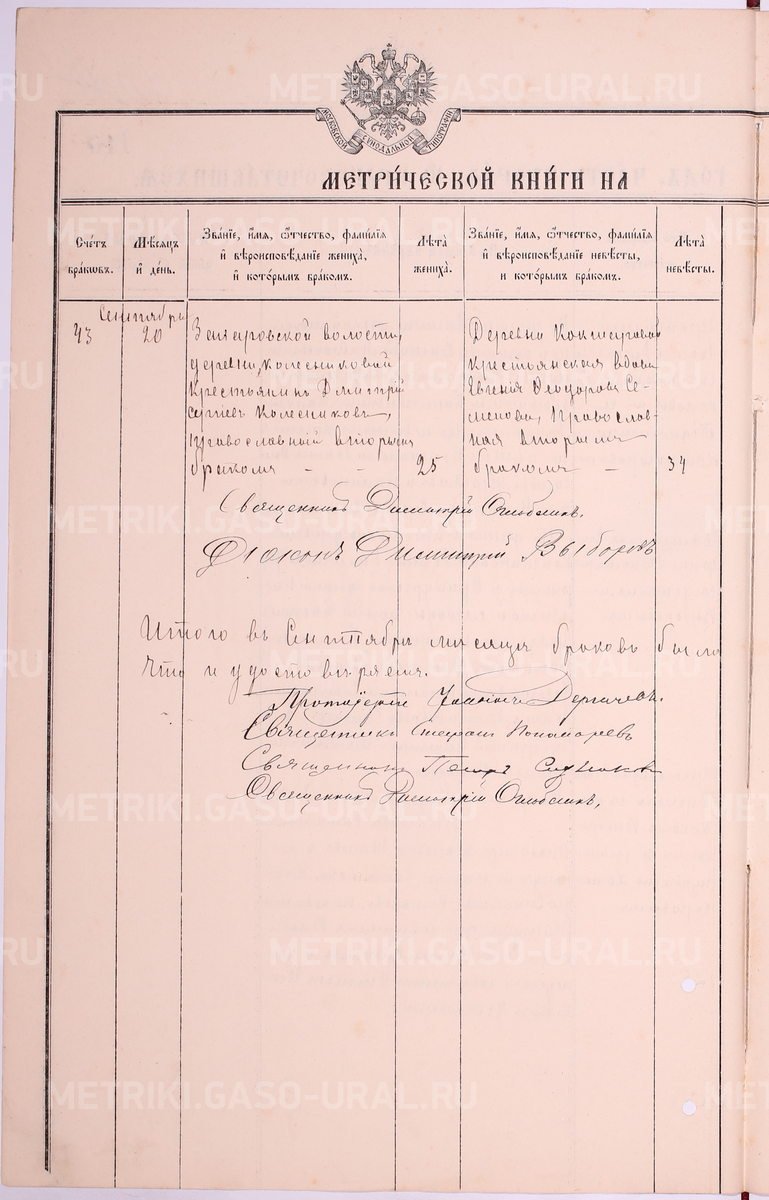 METRIKI.GASO-URAL.RU
МОСКОВСКОЙ СѴНОДАЛЬНОЙ ТИПОГРАФІИ
МЕТРИ́ЧЕСКОЙ КНИ́ГИ НА
Сче́тъ бра́кωвъ.
Мѣ́сяцъ и҆ де́нь.
Зва́нїе, и҆́мя, ѻ҆́тчество, фами́лїя и҆ вѣроисповѣ́данїе жениха̀, и҆ кото́рымъ бра́комъ.
Лѣ́та жениха̀.
Зва́нїе, и҆́мя, ѻ҆́тчество, фами́лїя и҆ вѣроисповѣ́данїе невѣ́сты, и҆ кото́рымъ бра́комъ.
Лѣ́та невѣ́сты.
Сентябрь
43
20
волости,
деревни Колесниковой
Крестьянинъ Дмитрій
Сергиев Колесниковъ,
православный вторымъ
бракомъ - -
25
Деревни
крестьянская вдова
Евгенія Ѳеодорова Се-
менова, Православ-
ная вторымъ
бракомъ -
34
Священникъ Димитрій
Діаконъ Димитрій Выборовъ
Итого въ Сентябрѣ мѣсяцѣ браковъ было
Что и удостовѣряемъ.
Протоіерей
Священникъ Стефанъ Пономаревъ
Священникъ Петръ
Священникъ Димитрій